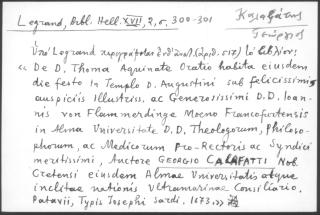 Legrand, Bibl. Hell. XVII, 2, σ. 300-301
Καλαφάτης
Γεώργιος
Ὑπὸ Legrand περιγράφεται (ἀριθ. 517) τὸ βιβλίον:
«De D. Thoma Aquinate Oratio habita eiusdem
die festo in Templo D. Augustini sub felicissimis
auspiciis Illustriss. ac Generosissimi D.D. Ioan-
nis von Flammerdinge Moeno Francofortensis
in Alma Universitate D.D. Theologorum, Philoso-
phorum, ac Medicorum Pro-Rectoris ac Syndici
meritissimi, Auctore GEORGIO CALAFATTI Nob.
Cretensi eiusdem Almae Universitatis atque
inclitae nationis Ultramarinae Consiliario.
Patavii, Typis Josephi Sardi. 1673.»